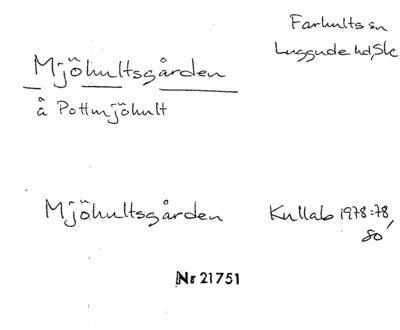 Farhults sn
Luggude hd, Sk
Mjöhultsgården
å Pottmjöhult
Mjöhultsgården
Kullab 1978:78,
80
Nr 21751